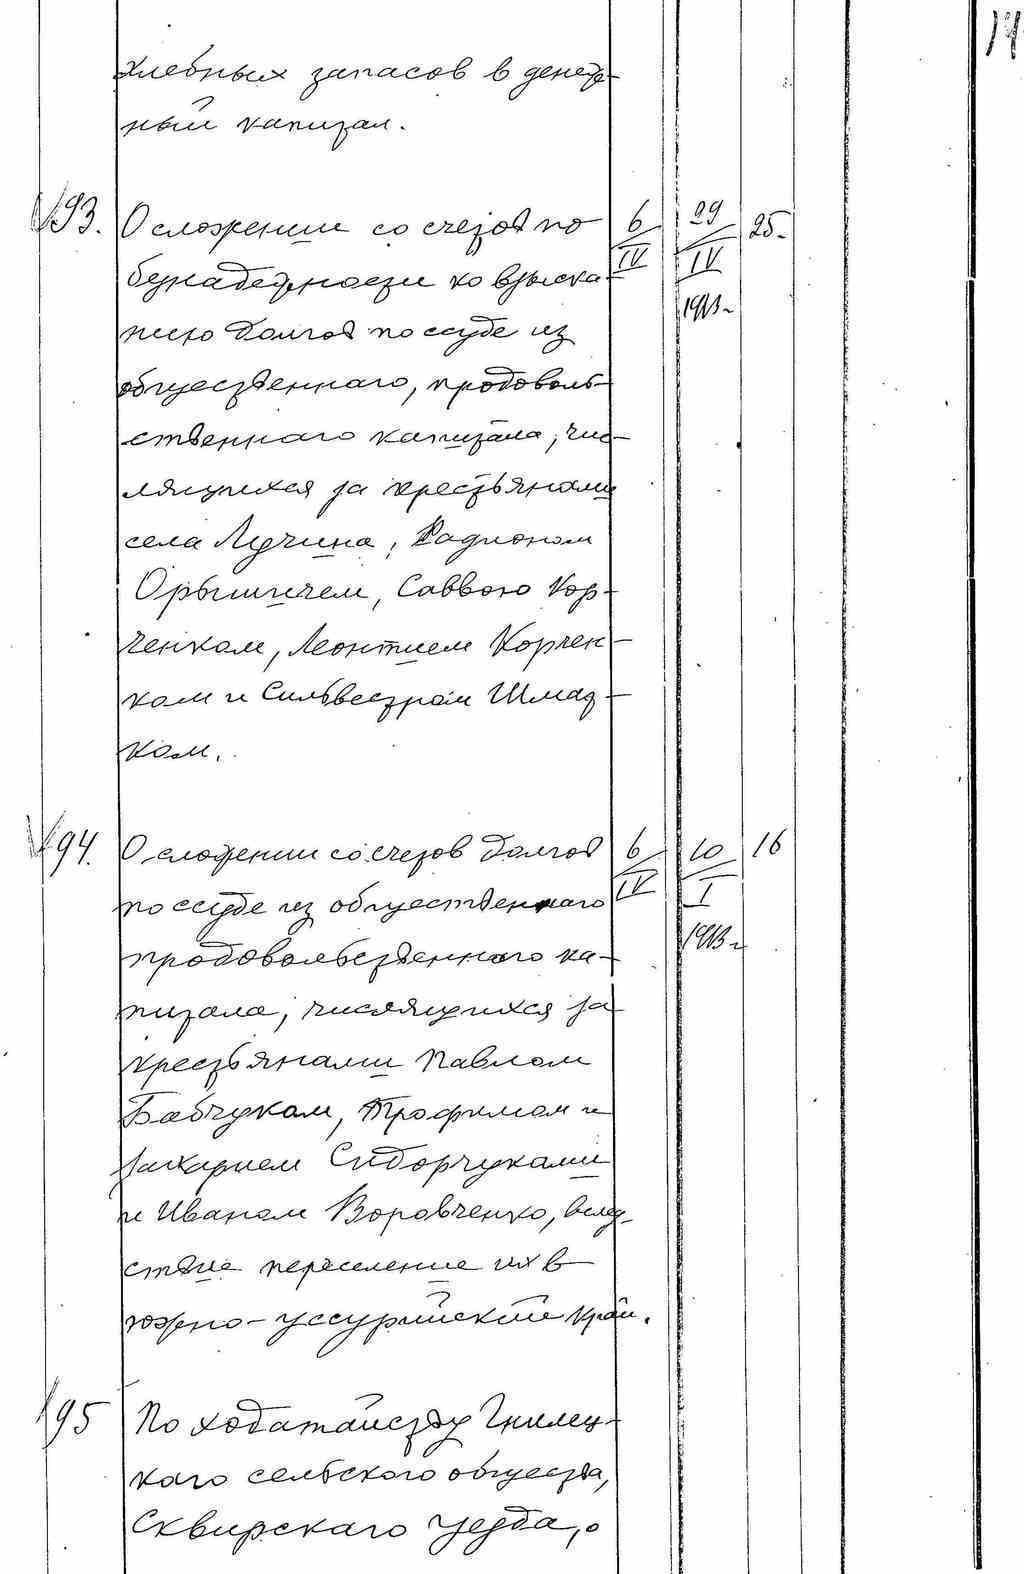 14
хлебных запасов в денеж-
ный капитал.
93. О сложении со счетов по 6/IV 29/IV 1913 г. 25.
безнадежности ко взыска-
нию долгов по ссуде из
общественнаго, продоволь-
ственнаго капитала, чис-
лящихся за крестьянами
села Лучина, Радионом
Орышичем, Саввою Кор-
ченком, Леонтием Корчен-
ком и Сильвестром Шмат-
ком.
94. О сложении со счетов долгов 6/IV 10/I 1913 г. 16
по ссуде из общественнаго
продовольственнаго ка-
питала, числящихся за
крестьянами Павлом
Бабчуком, Трофимом и
Захарием Сидорчуками
и Иваном Воровченко, вслед-
ствие переселение их в
южно-уссурийский край.
95 По ходатайству Гнилец-
каго сельского общества,
Сквирскаго уезда, о